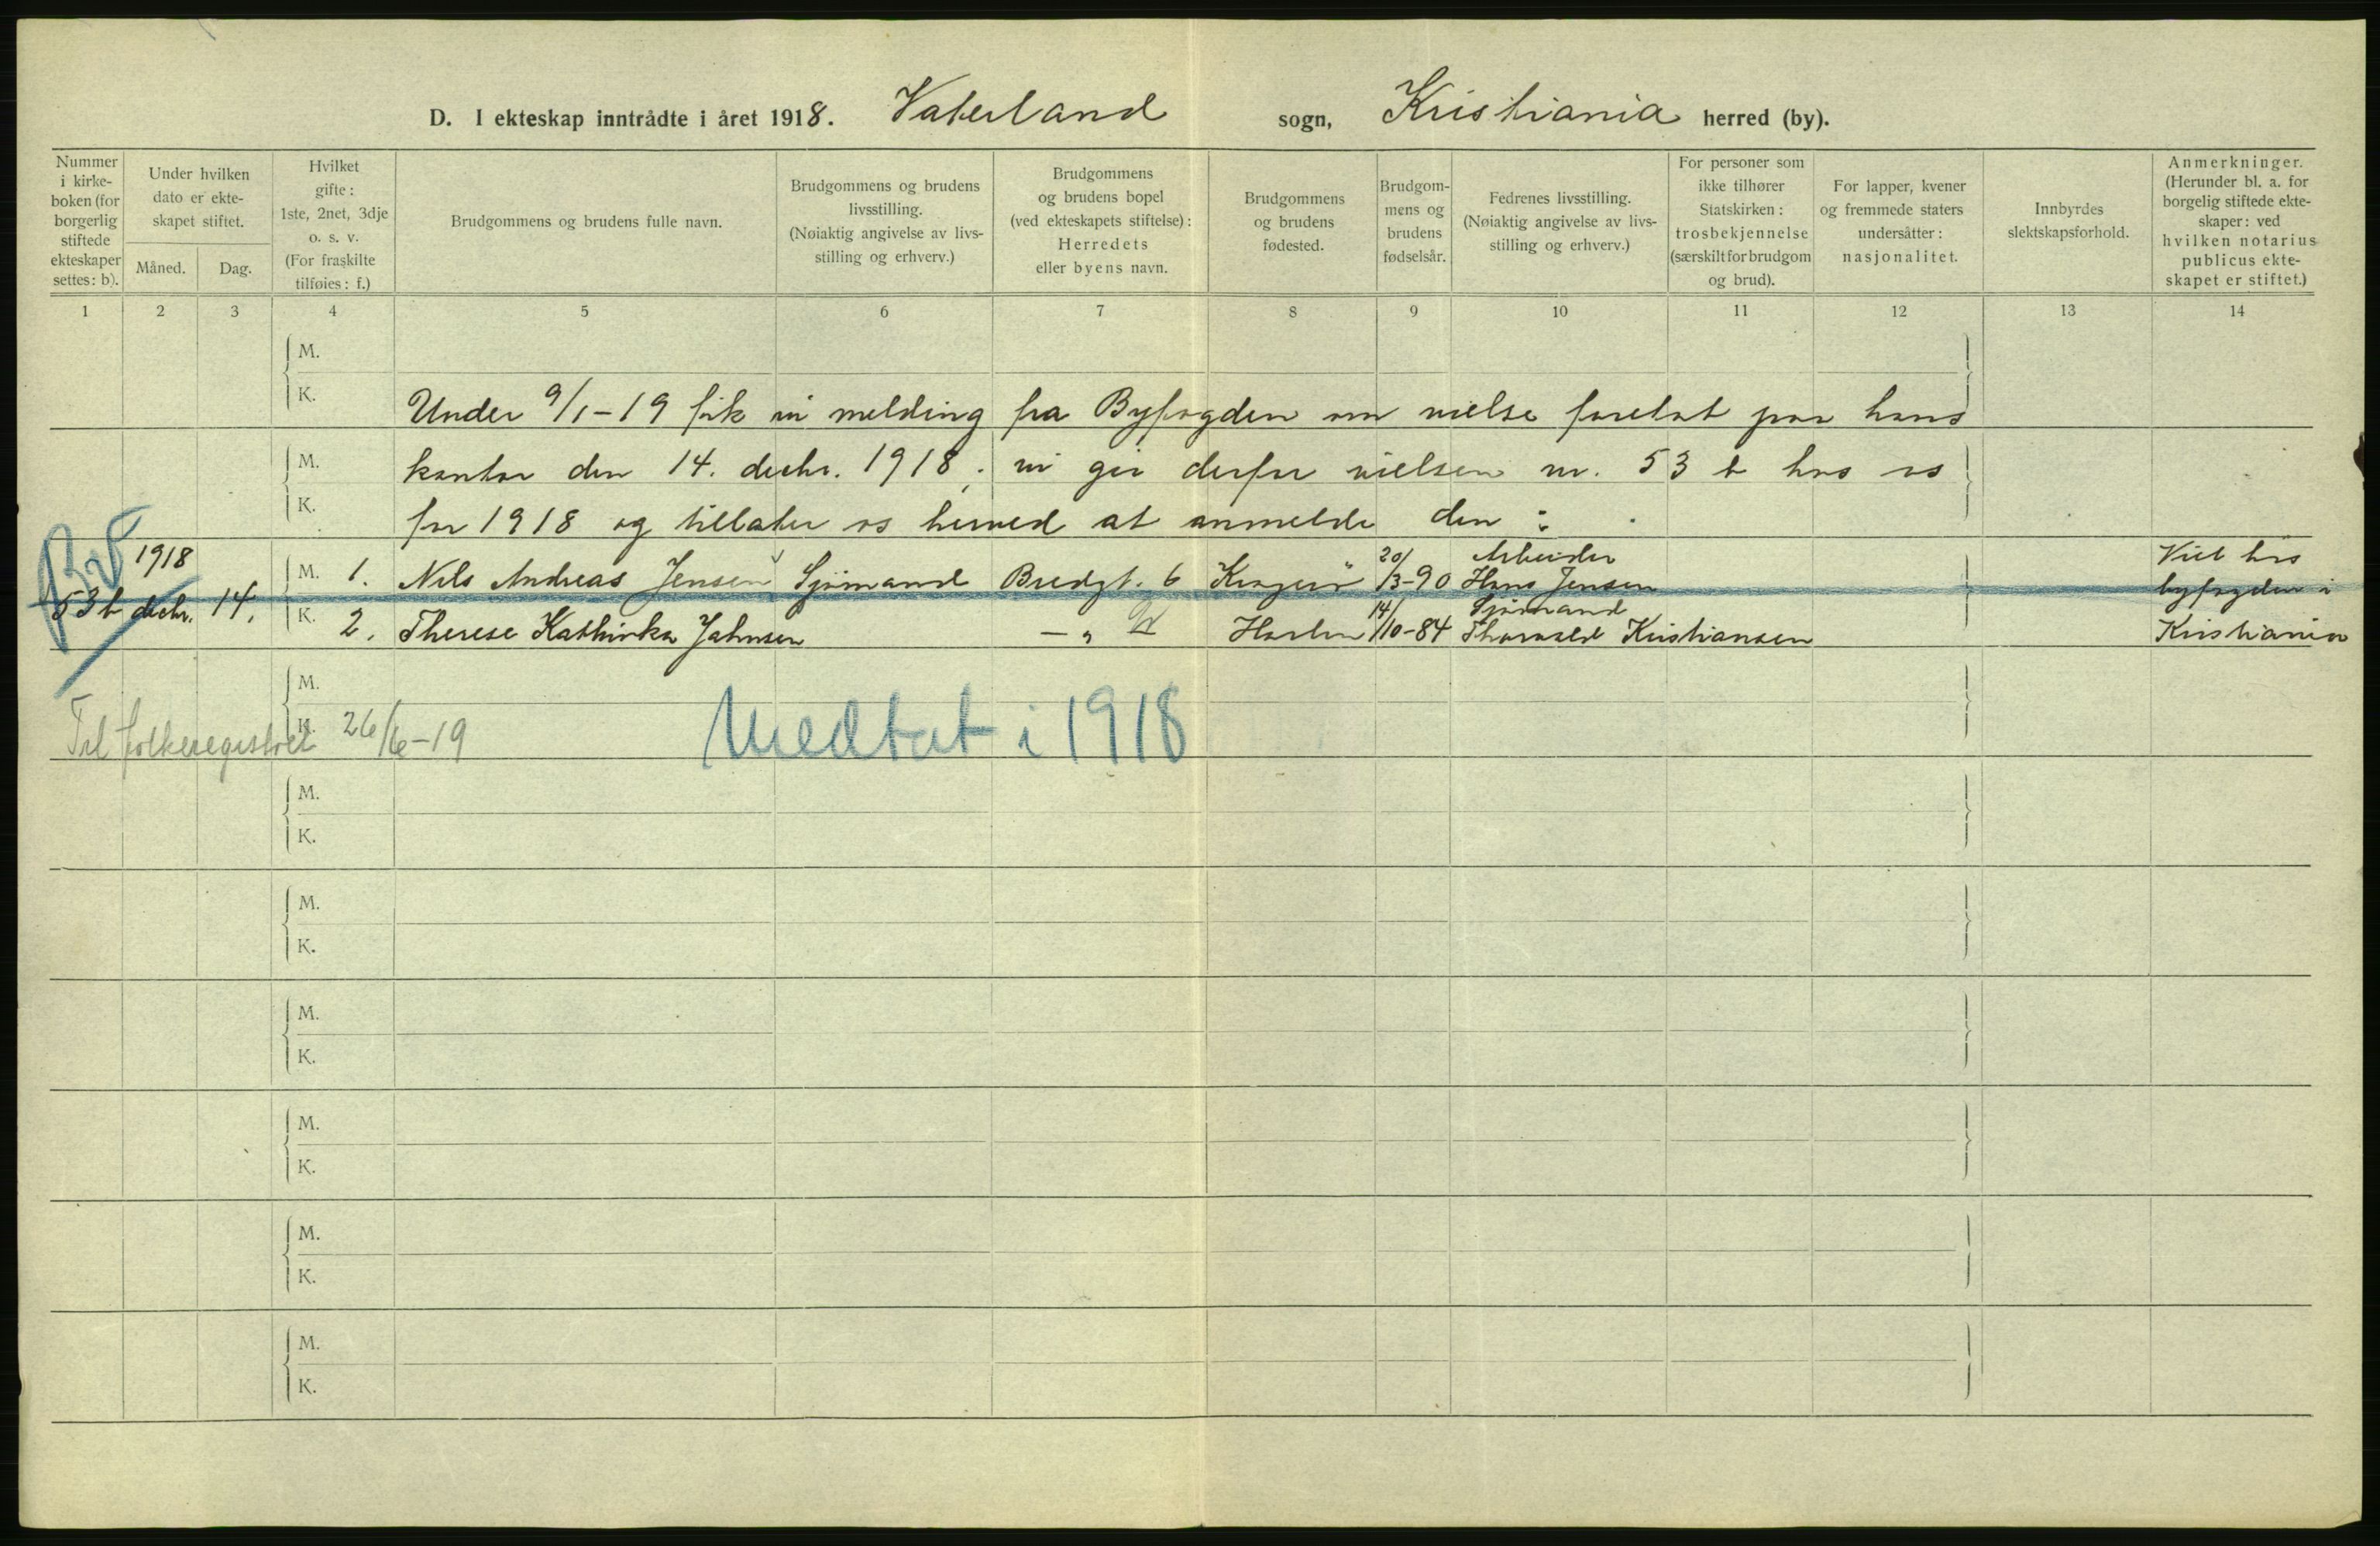 D. I ekteskap inntrådte i året 1918. Vaterland sogn, Kristiania herred (by).
Nummer i kirke-boken (for borgerlig stiftede ekteskaper settes: b).
Under hvilken dato er ekte-skapet stiftet.
Måned.
Dag.
Hvilket gifte: 1ste, 2net, 3dje o. s. v. (For fraskilte tilføies: f.)
Brudgommens og brudens fulle navn.
Brudgommens og brudens livsstilling. (Nøiaktig angivelse av livs-stilling og erhverv.)
Brudgommens og brudens bopel (ved ekteskapets stiftelse): Herredets eller byens navn.
Brudgommens og brudens fødested.
Brudgom-mens og brudens fødselsår.
Fedrenes livsstilling. (Nøiaktig angivelse av livs-stilling og erhverv.)
For personer som ikke tilhører Statskirken: trosbekjennelse (særskilt for brudgom og brud).
For lapper, kvener og fremmede staters undersåtter: nasjonalitet.
Innbyrdes slektskapsforhold.
Anmerkninger. (Herunder bl. a. for borgelig stiftede ekte-skaper: ved hvilken notarius publicus ekte-skapet er stiftet.)
1 2 3 4 5 6 7 8 9 10 11 12 13 14
M.
K.
Under 9/1-19 fik vi melding fra Byfogden om vielse foretat paa hans
M.
kontor den 14. decbr. 1918; vi gir derfor vielsen nr. 53 b hos os
K.
for 1918 og tillater os herved at anmelde den :
1918 20/ Arbeider Viet hos
M. 1. Nils Andreas Jensen Sjömand Bredgt. 6 Kragerö 3-90 Hans Jensen byfogden i
53 b decbr. 14. 14/ Sjömand
K. 2. Therese Kathinka Johnsen — „ — Horten 10-84 Thorvald Kristiansen Kristiania
M.
K.
Til folkeregistret 26/6-19 Medtat i 1918
M.
K.
M.
K.
M.
K.
M.
K.
M.
K.
M.
K.